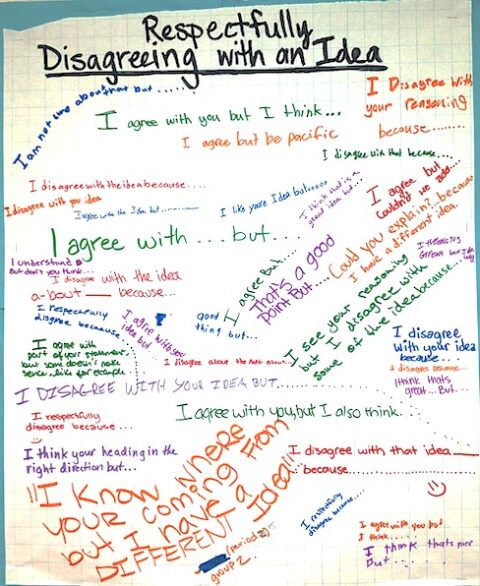 Respectfully
Disagreeing with an Idea
I am not sure about that but.......
I agree with you but I think...
I agree but be pacific
I Disagree with
your reasoning
because.........
I disagree with that because....
I disagree with the idea because....
I disagree with you idea
I agree with the Idea but.........
I like youre Idea but.....
I think that is a
great idea but...
I agree but
Couldn't we add...
Could you explain? because
I have a different idea
I agree with ... but...
I understand
But don't you think...
I disagree with the idea
a-bout ___ because...
I agree But...
That's a good
point But....
I see your reasoning
but I disagree with
some of the idea because...
I respectfully
disagree because...
I agree with you
idea but...
good
thing but...
I disagree
with your idea
because...
I agree with
part of your statement
but some doesn't make
sence...like for example
I disagree about the fact about...
I disagree because...
I think thats
great... But...
I DISAGREE WITH YOUR IDEA BUT............
I respectfully
disagree because...
I agree with you, but I also think....
I think your heading in the
right direction but...
I disagree with that idea ___
because...............
"I KNOW WHERE
YOUR COMING FROM
but I have a
DIFFERENT IDEA!"
I respectfully
disagree because...
(period 2)
group 2
I agree with you but
I think....
I think thats nice
But......